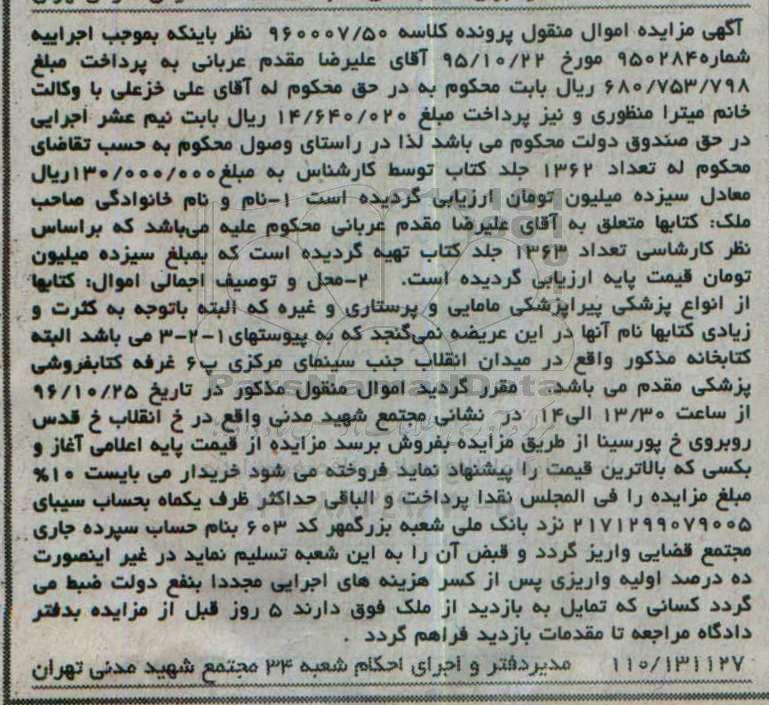 آگهی مزایده اموال منقول پرونده کلاسه ۹۶۰۰۰۷/۵۰ نظر باینکه بموجب اجراییه
شماره۹۵۰۲۸۴ مورخ ۹۵/۱۰/۲۲ آقای علیرضا مقدم عربانی به پرداخت مبلغ
۶۸۰/۷۵۳/۷۹۸ ریال بابت محکوم به در حق محکوم له آقای علی خزعلی با وکالت
خانم میترا منظوری و نیز پرداخت مبلغ ۱۴/۶۴۰/۰۲۰ ریال بابت نیم عشر اجرایی
در حق صندوق دولت محکوم می باشد لذا در راستای وصول محکوم به حسب تقاضای
محکوم له تعداد ۱۳۶۲ جلد کتاب توسط کارشناس به مبلغ۱۳۰/۰۰۰/۰۰۰ریال
معادل سیزده میلیون تومان ارزیابی گردیده است ۱-نام و نام خانوادگی صاحب
ملک: کتابها متعلق به آقای علیرضا مقدم عربانی محکوم علیه می‌باشد که براساس
نظر کارشناسی تعداد ۱۳۶۳ جلد کتاب تهیه گردیده است که بمبلغ سیزده میلیون
تومان قیمت پایه ارزیابی گردیده است. ۲-محل و توصیف اجمالی اموال: کتابها
از انواع پزشکی پیراپزشکی مامایی و پرستاری و غیره که البته باتوجه به کثرت و
زیادی کتابها نام آنها در این عریضه نمی‌گنجد که به پیوستهای۱-۲-۳ می باشد البته
کتابخانه مذکور واقع در میدان انقلاب جنب سینمای مرکزی پ۶ غرفه کتابفروشی
پزشکی مقدم می باشد. مقرر گردید اموال منقول مذکور در تاریخ ۹۶/۱۰/۲۵
از ساعت ۱۳/۳۰ الی۱۴ در نشانی مجتمع شهید مدنی واقع در خ انقلاب خ قدس
روبروی خ پورسینا از طریق مزایده بفروش برسد مزایده از قیمت پایه اعلامی آغاز و
بکسی که بالاترین قیمت را پیشنهاد نماید فروخته می شود خریدار می بایست ۱۰%
مبلغ مزایده را فی المجلس نقدا پرداخت و الباقی حداکثر ظرف یکماه بحساب سیبای
۲۱۷۱۲۹۹۰۷۹۰۰۵ نزد بانک ملی شعبه بزرگمهر کد ۶۰۳ بنام حساب سپرده جاری
مجتمع قضایی واریز گردد و قبض آن را به این شعبه تسلیم نماید در غیر اینصورت
ده درصد اولیه واریزی پس از کسر هزینه های اجرایی مجددا بنفع دولت ضبط می
گردد کسانی که تمایل به بازدید از ملک فوق دارند ۵ روز قبل از مزایده بدفتر
دادگاه مراجعه تا مقدمات بازدید فراهم گردد .
۱۱۰/۱۳۱۱۲۷ مدیردفتر و اجرای احکام شعبه ۳۴ مجتمع شهید مدنی تهران